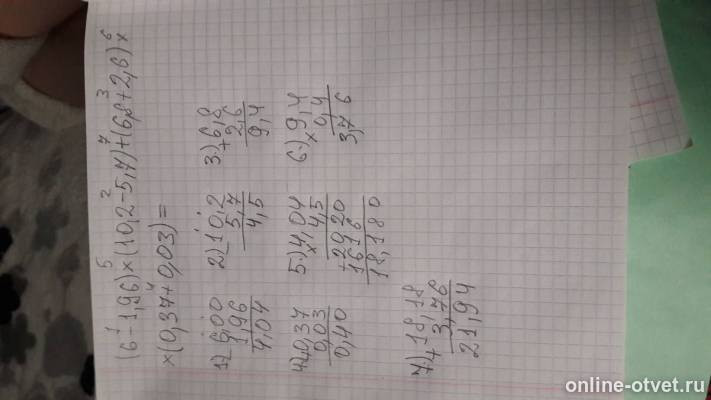 1 5 2 7 3 6
(6-1,96)×(10,2-5,7)+(6,8+2,6)×
4
×(0,37+0,03)=
1) 6,00 2) 10,2 3) 6,8
- 1,96 - 5,7 + 2,6
4,04 4,5 9,4
4) 0,37 5) 4,04 6) 9,4
+ 0,03 × 4,5 × 0,4
0,40 + 2020 3,76
1616
18,180
7) 18,18
+ 3,76
21,94
online-otvet.ru